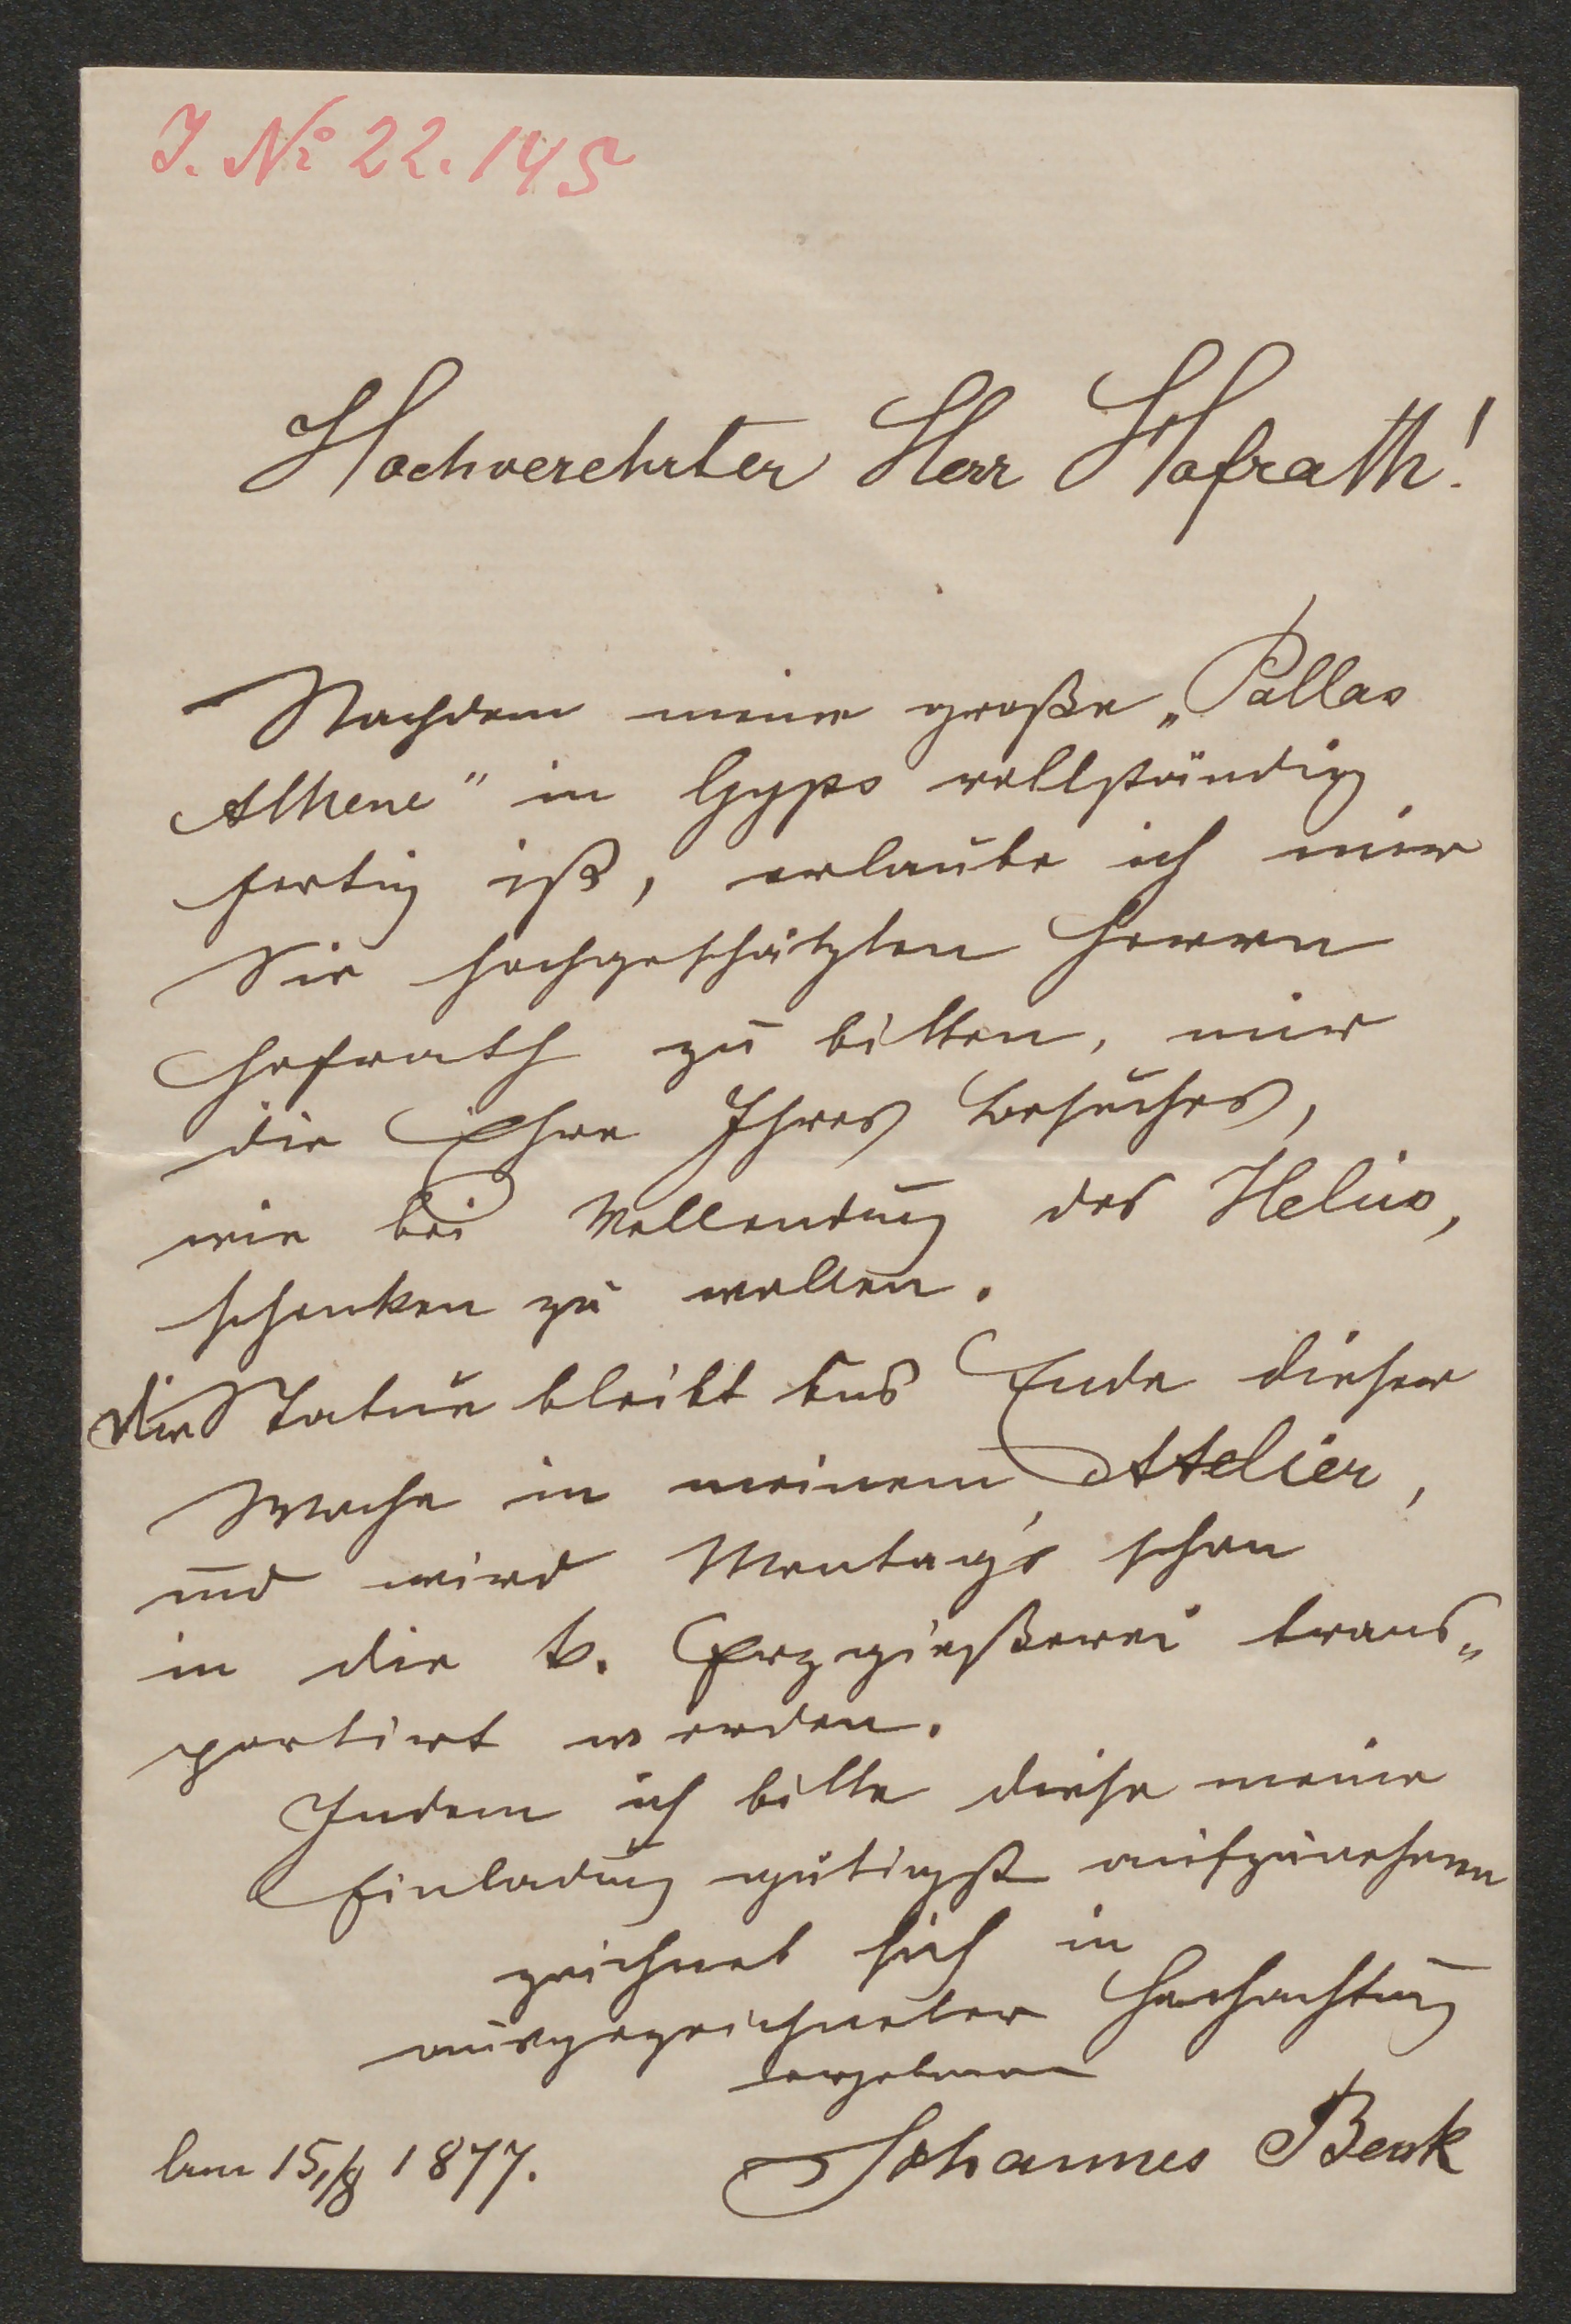 J. No 22.145
Hochverehrter Herr Hofrath!
Nachdem meine große „Pallas
Athene" in Gyps vollständig
fertig ist, erlaube ich mir
Sie hochgeschätzten Herrn
Hofrath zu bitten, mir
die Ehre Ihres Besuches,
wie bei Vollendung des Helios,
schenken zu wollen.
Die Statue bleibt bis Ende dieser
Woche in meinem Attelier,
und wird Montag's schon
in die k. Erzgießerei trans„
portirt werden.
Indem ich bitte diese meine
Einladung gütigst aufzunehmen
zeichnet sich in
ausgezeichneter Hochachtung
ergebener
Johannes Benk
15/8 1877.